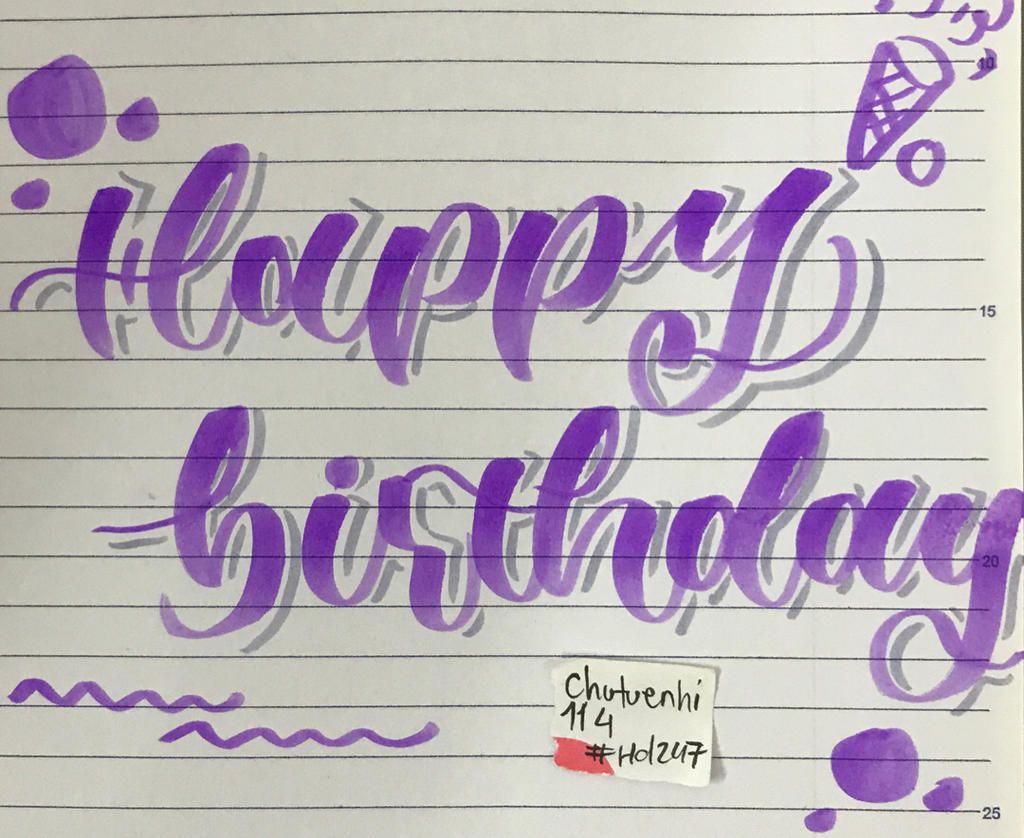 10
Happy
15
birthday
20
Chutuenhi
114
#Hol247
25